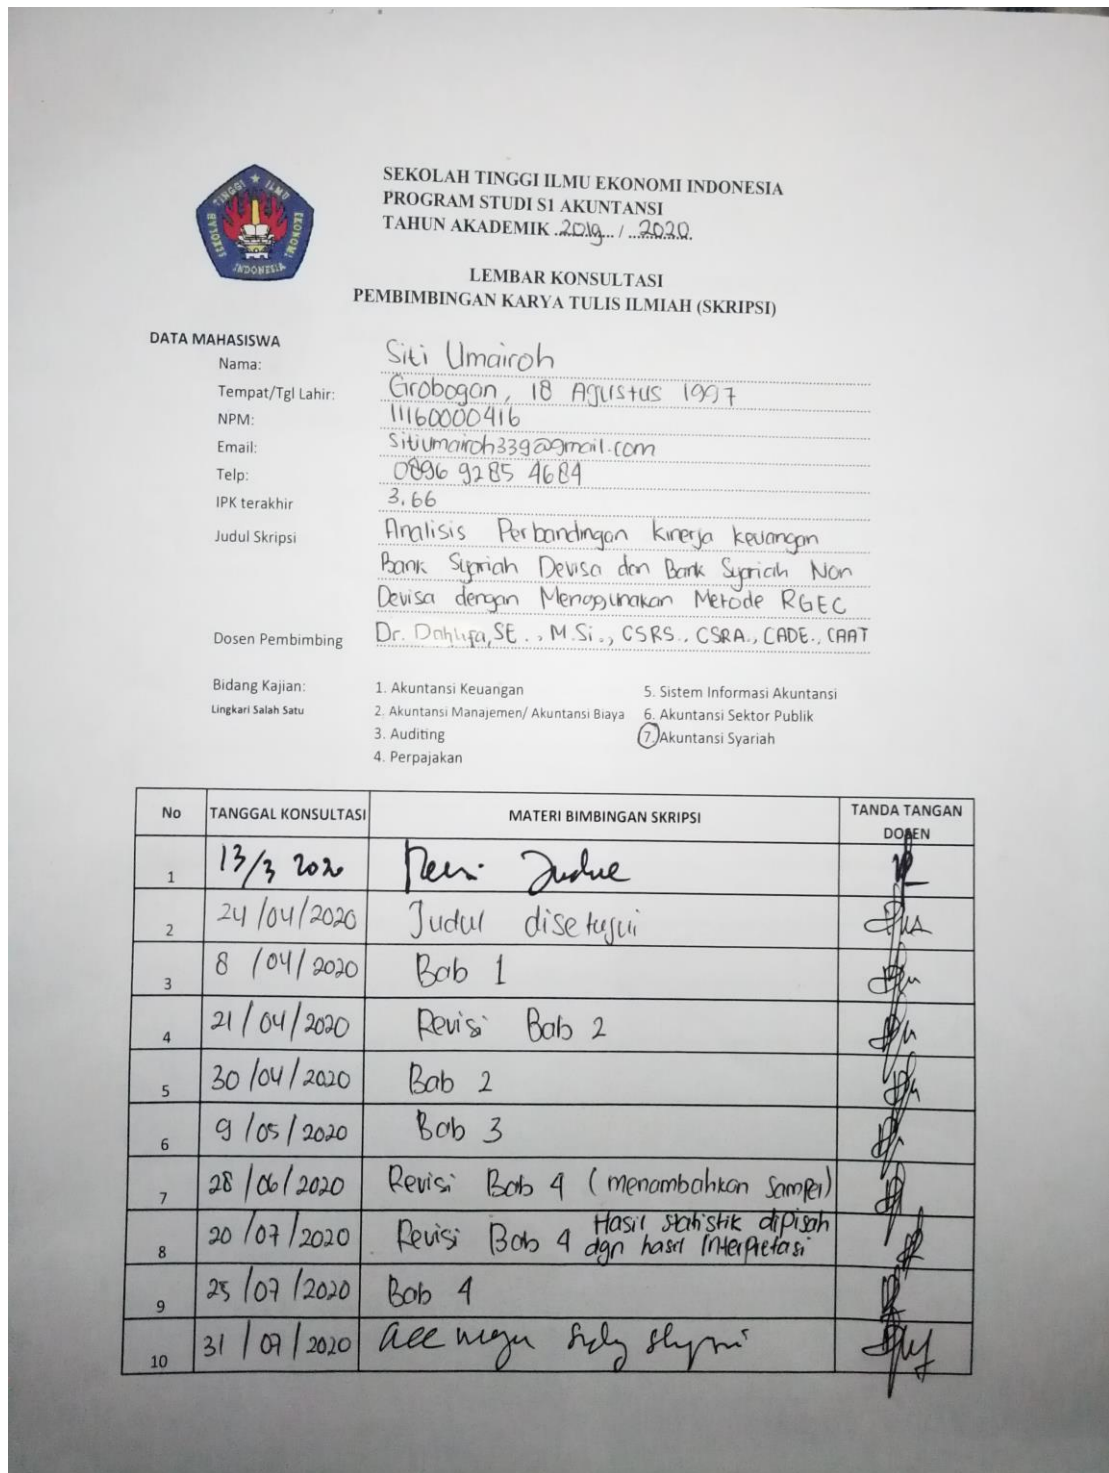 SEKOLAH TINGGI ILMU EKONOMI INDONESIA
SEKOLAH TINGGI ILMU EKONOMI INDONESIA
PROGRAM STUDI S1 AKUNTANSI
TAHUN AKADEMIK 2019 / 2020
LEMBAR KONSULTASI
PEMBIMBINGAN KARYA TULIS ILMIAH (SKRIPSI)
DATA MAHASISWA
Nama: Siti Umairoh
Tempat/Tgl Lahir: Grobogan, 18 Agustus 1997
NPM: 11160000416
Email: Sitiumairoh339@gmail.com
Telp: 0896 9285 4684
IPK terakhir 3.66
Judul Skripsi Analisis Perbandingan Kinerja keuangan
Bank Syariah Devisa dan Bank Syariah Non
Devisa dengan Menggunakan Metode RGEC
Dosen Pembimbing Dr. Dahlifa, SE., M.Si., CSRS., CSRA., CADE., CAAT
Bidang Kajian: 1. Akuntansi Keuangan 5. Sistem Informasi Akuntansi
Lingkari Salah Satu 2. Akuntansi Manajemen/ Akuntansi Biaya 6. Akuntansi Sektor Publik
3. Auditing 7. Akuntansi Syariah
4. Perpajakan
No TANGGAL KONSULTASI MATERI BIMBINGAN SKRIPSI TANDA TANGAN DOSEN
1 13/3 2020 Judul
2 24/04/2020 Judul disetujui
3 8/04/2020 Bab 1
4 21/04/2020 Revisi Bab 2
5 30/04/2020 Bab 2
6 9/05/2020 Bab 3
7 28/06/2020 Revisi Bab 4 (menambahkan sampel)
8 20/07/2020 Revisi Bab 4 Hasil statistik dipisah
dgn hasil Interpretasi
9 25/07/2020 Bab 4
10 31/07/2020 acc